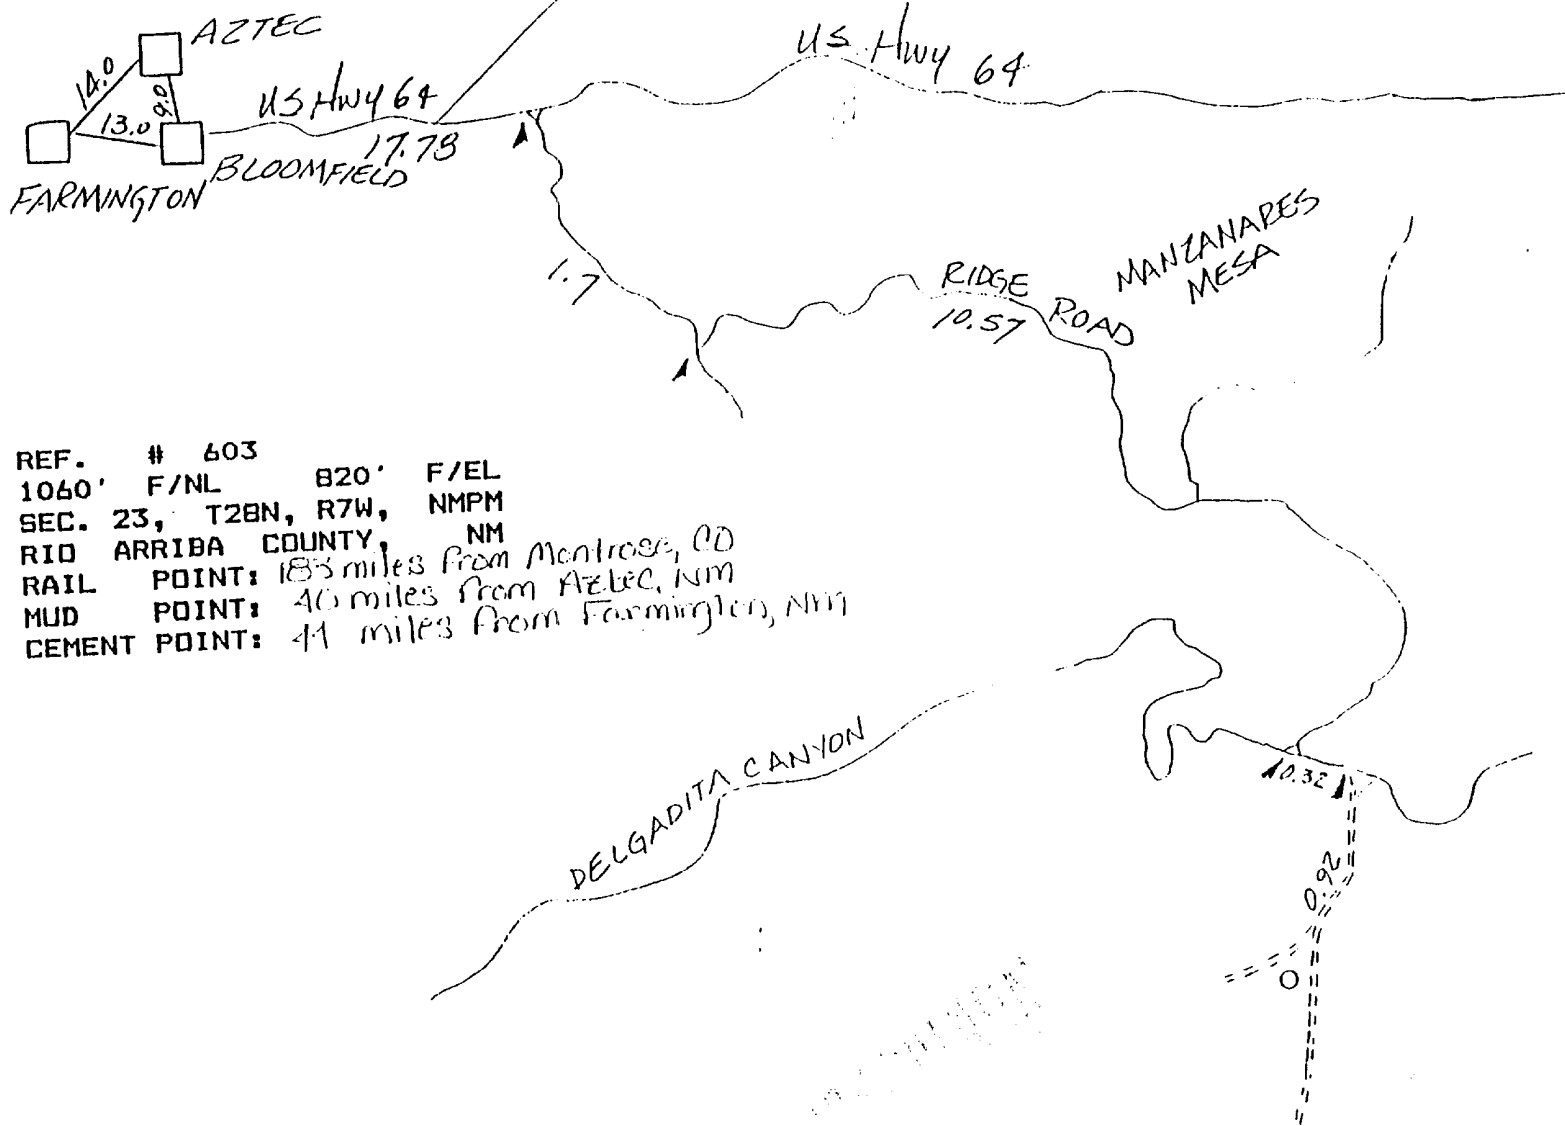 AZTEC
14.0
9.0
13.0
US HWY 64
17.78
BLOOMFIELD
FARMINGTON
US HWY 64
1.7
RIDGE ROAD
10.57
MANZANARES
MESA
REF. # 603
1060' F/NL 820' F/EL
SEC. 23, T28N, R7W, NMPM
RIO ARRIBA COUNTY, NM
RAIL POINT: 183 miles from Montrose, CO
MUD POINT: 40 miles from Aztec, NM
CEMENT POINT: 44 miles from Farmington, NM
DELGADITA CANYON
0.32
0.92